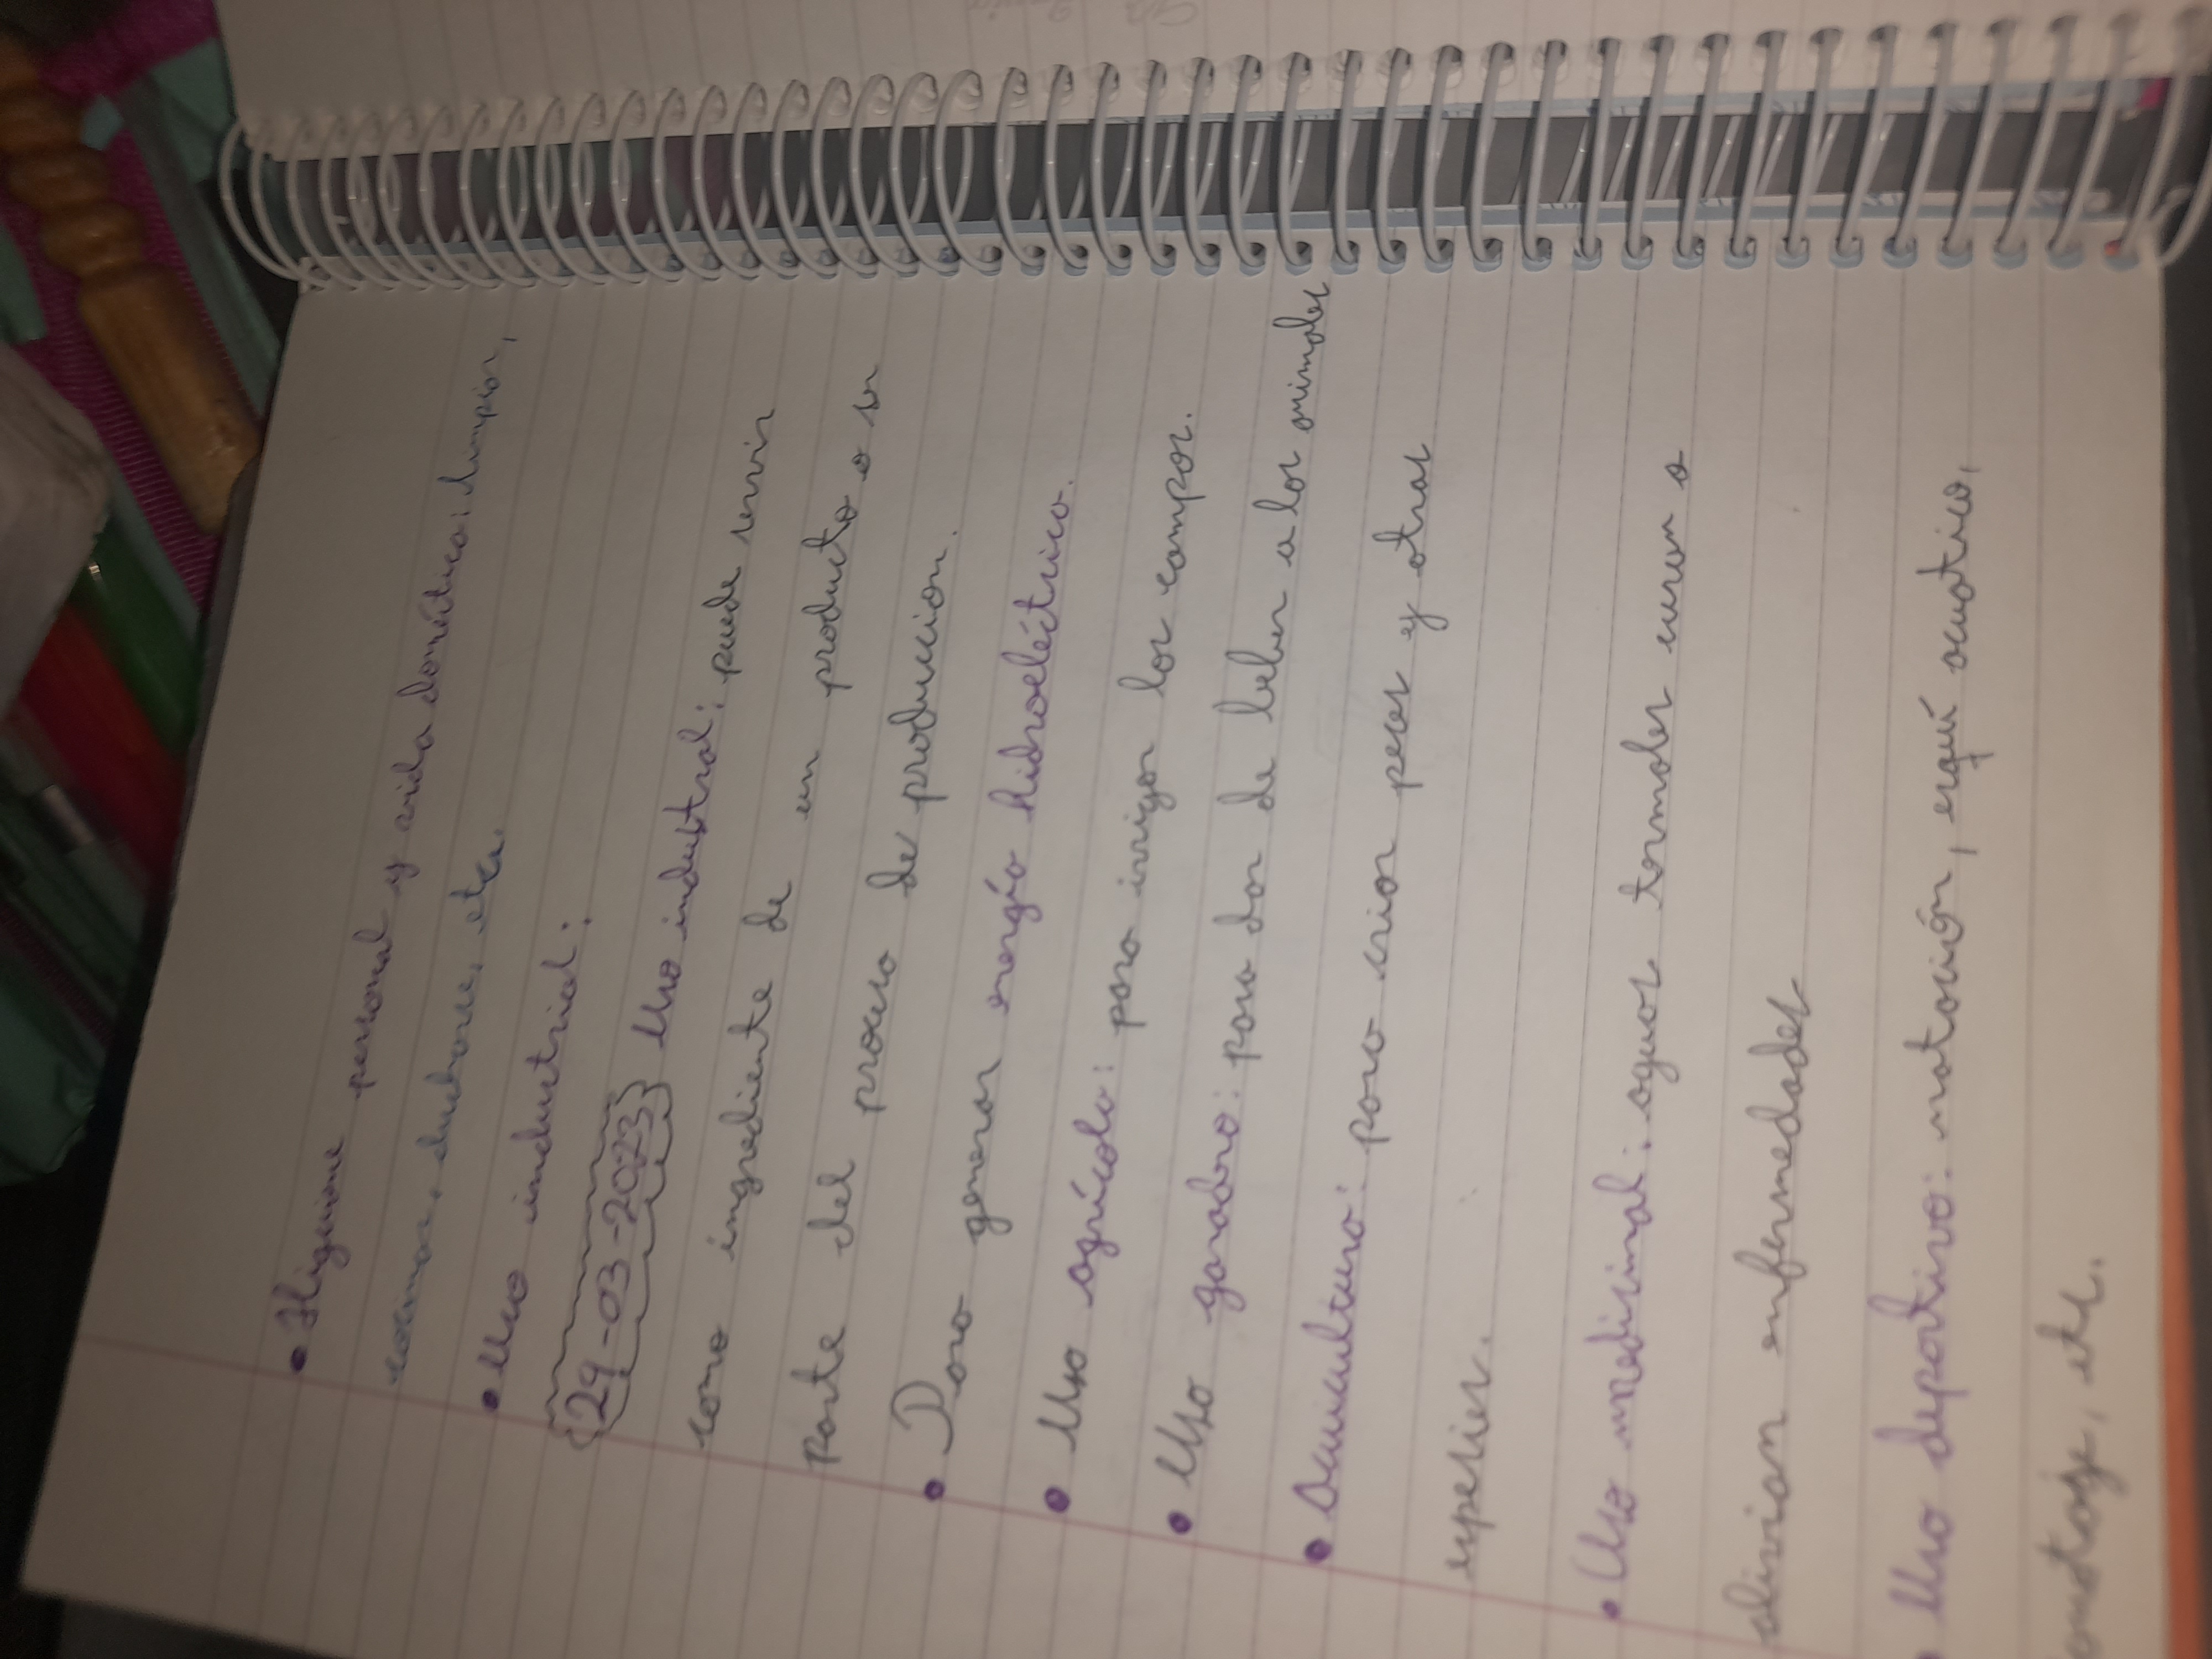 • Higuiene personal y vida doméstica: limpiar,
cocinar, ducharse, etc.
• Uso industrial:
29-03-2023 Uso industral: puede servir
como ingrediente de un producto o se
Parte del proceso de producion.
• Para generar energía hidroeléctrica.
• Uso agrícola: para irrigar los campos.
• Uso ganadero: para dar de beber a los animales
• Acuicultura: para criar peces y otras
especies.
• Uso medicinal: aguas termales curan o
alivian enfermedades
• Uso deportivo: natación, esquí acuatico,
etc.